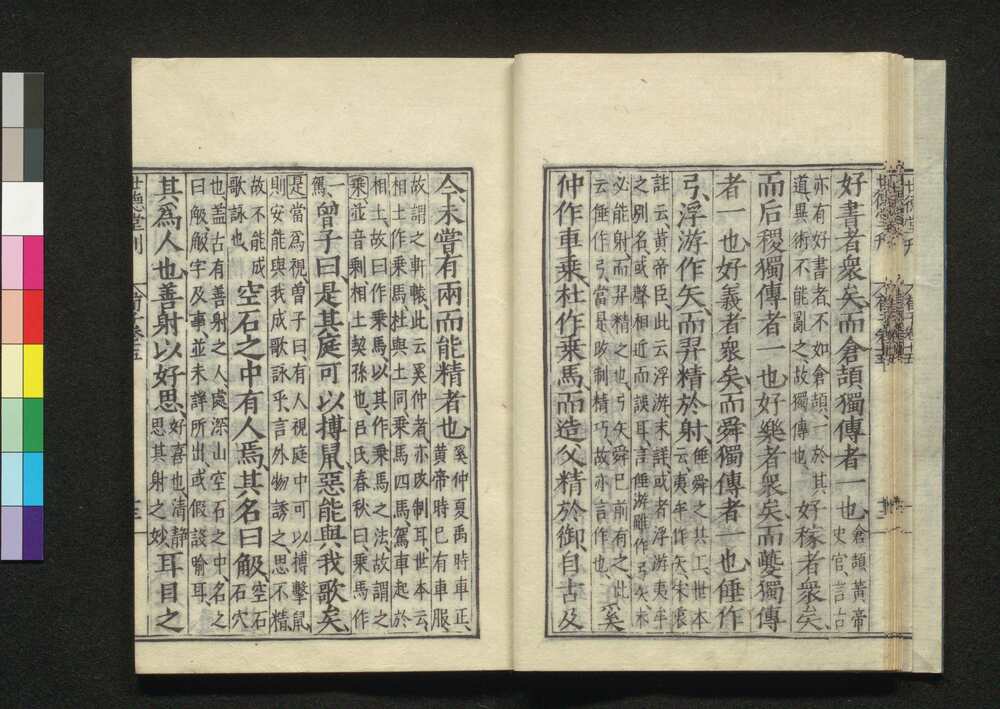 好書者衆矣、而倉頡獨傳者一也、倉頡黃帝史官、言古
亦有好書者、不如倉頡、一於其道、異術不能亂之、故獨傳也、好稼者衆矣、
而后稷獨傳者一也、好樂者衆矣、而夔獨傳
者一也、好義者衆矣、而舜獨傳者一也、倕作
弓、浮游作矢、而羿精於射、倕舜之共工、世本云、夷牟作矢、宋衷
註云、黃帝臣也、此云浮游、未詳、或者浮游夷牟之別名、或聲相近而誤耳、言倕游雖作弓矢、未
必能射、而羿精之也、弓矢舜已前有之、此云倕作弓、當是改制精巧、故亦言作也、奚
仲作車、乘杜作乘馬、而造父精於御、自古及
今、未嘗有兩而能精者也、奚仲夏禹時車正、黃帝時已有車服、
故謂之軒轅、此云奚仲者、亦改制耳、世本云、相土作乘馬、杜與土同、乘馬四馬、駕車起於
相土、故曰作乘馬、以其作乘馬之法、故謂之乘、並音剩、相土契孫也、呂氏春秋曰、乘馬作
一駕、曾子曰、是其庭可以搏鼠、惡能與我歌矣、
是當爲視、曾子曰、有人視庭中可以搏擊鼠、則安能與我成歌詠乎、言外物誘之、思不精、
故不能成歌詠也、空石之中有人焉、其名曰觙、空石石穴
也、蓋古有善射之人、處深山空石之中、名之曰觙、觙字及事並未詳所出、或假設喻耳、
其爲人也、善射以好思、好喜也、清靜思其射之妙、耳目之
世德堂刊